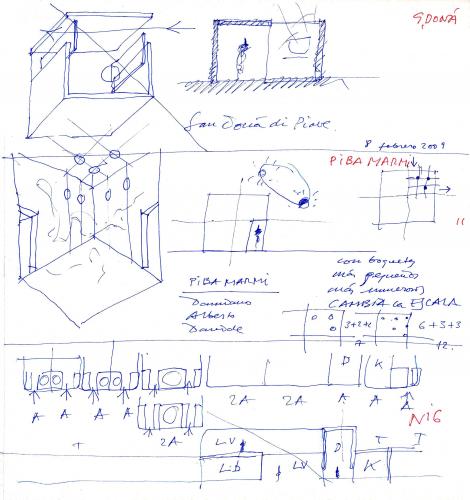 S. DONÁ
San Doná di Piave.
8 febrero 2009
PIBAMARMI
11
con boquetes
más pequeños
más numerosos
CAMBIA la ESCALA
PIBAMARMI
Domiziano
Alberto
Davide
3+2+2
7
6+3+3
12.
D K
A A A A A 2A 2A A A A
N16
2A
LV D T I
Lib LV K